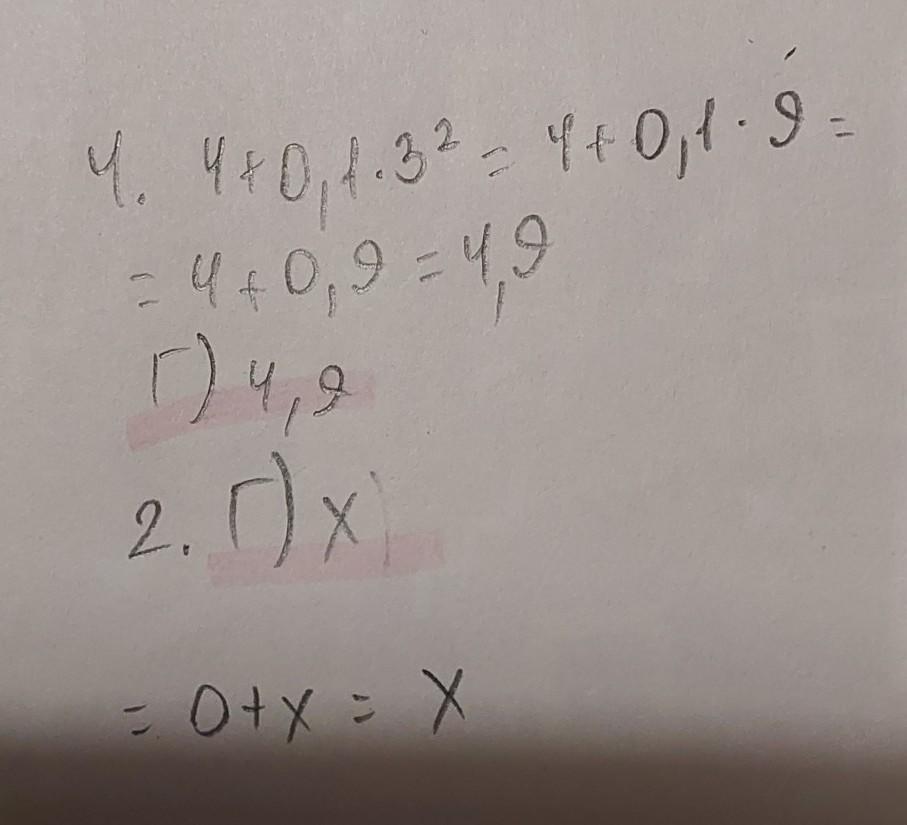 4. 4+0,1·3² = 4+0,1·9 =
= 4+0,9 = 4,9
Г) 4,9
2. Г) x
= 0+x = x